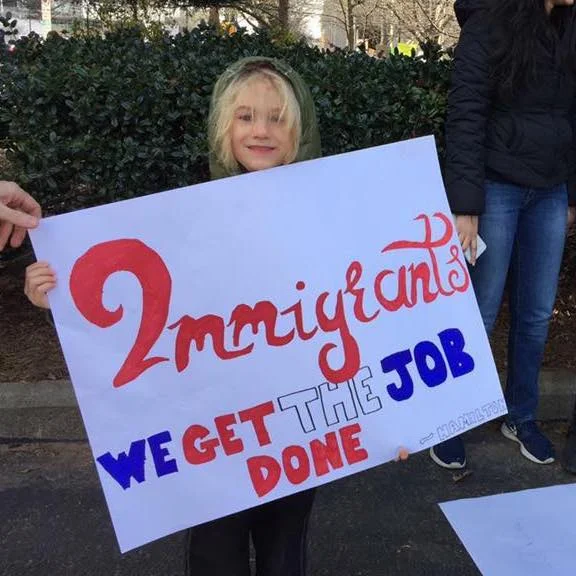 Immigrants
WE GET THE JOB
DONE
~ HAMILTON